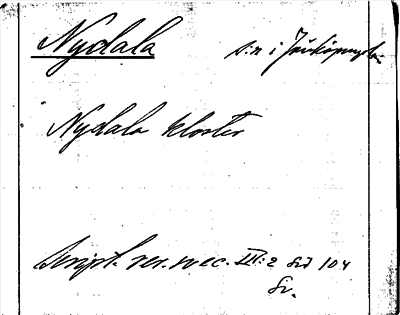 Nydala s:n i Jönköpings l.
Nydala kloster
Script. rer. svec. III:2 sid 104
Sv.